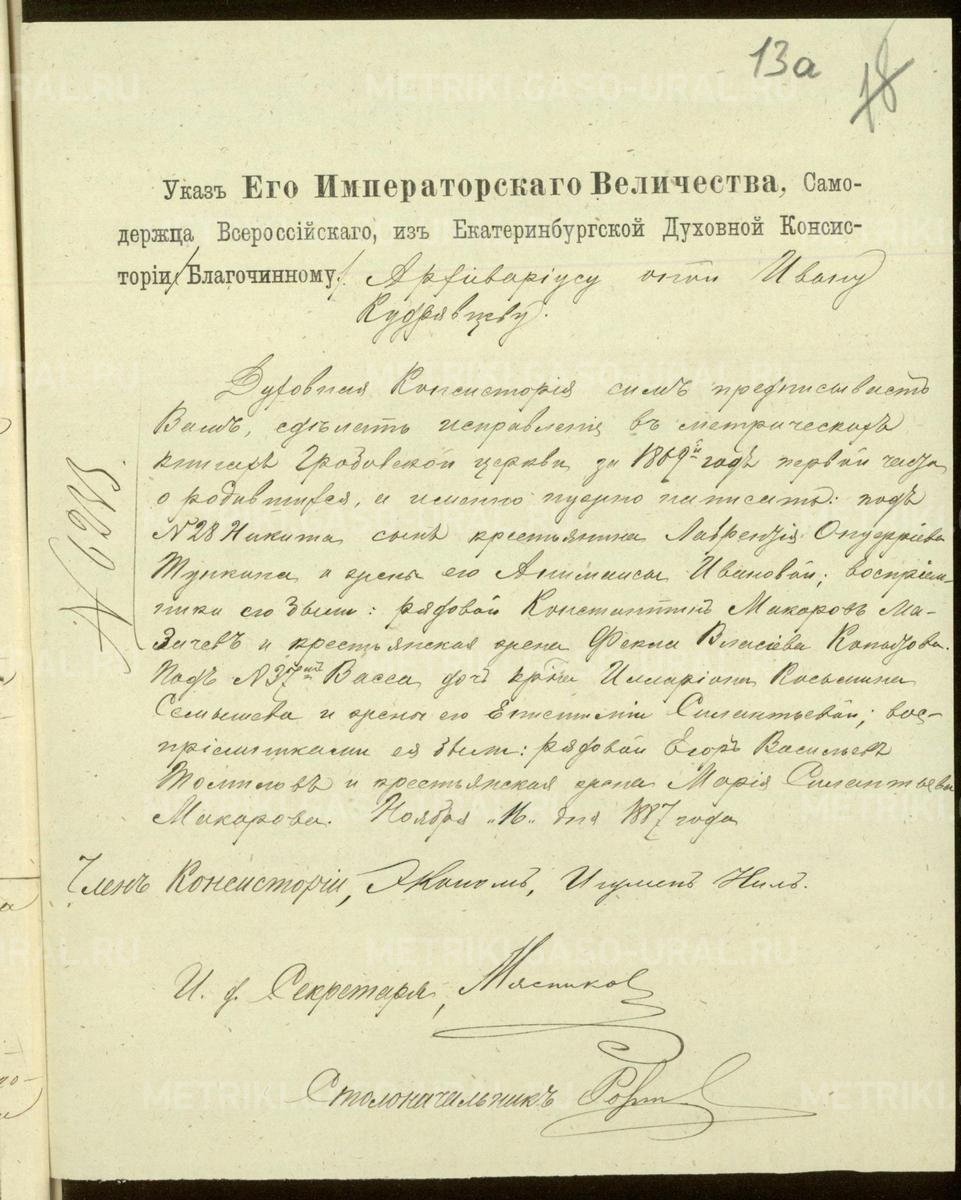 13а
18
Указъ Его Императорскаго Величества, Само-
держца Всероссійскаго, изъ Екатеринбургской Духовной Консис-
торіи Благочинному Архиваріусу отцу Ивану
Кудрявцеву.
Духовная Консисторія симъ предписываетъ
Вамъ, сдѣлать исправленія въ метрическихъ
книгахъ Гробовской церкви за 1869й годъ первой части
о родившихся, а именно нужно написать: подъ
N28 Никита сынъ крестьянина Лаврентія
и жены его Ивановой; воспріем-
ники его были: рядовой Константинъ Макаровъ Ма-
зачевъ и крестьянская жена Фекла Власіева
Подъ N37 Васса дочь кр-на Илларіона Косьмина
Семышева и жены его Епистиміи Силантьевой; вос-
пріемниками ея были: рядовой Егоръ Васильевъ
Томиловъ и крестьянская жена Марія Силантьева
Макарова. Ноября „16" дня 1887 года
N 6285
Членъ Консисторіи, Экономъ, Игуменъ Нилъ.
И. д. Секретаря, Мясников
Столоначальникъ
METRIKI.GASO-URAL.RU